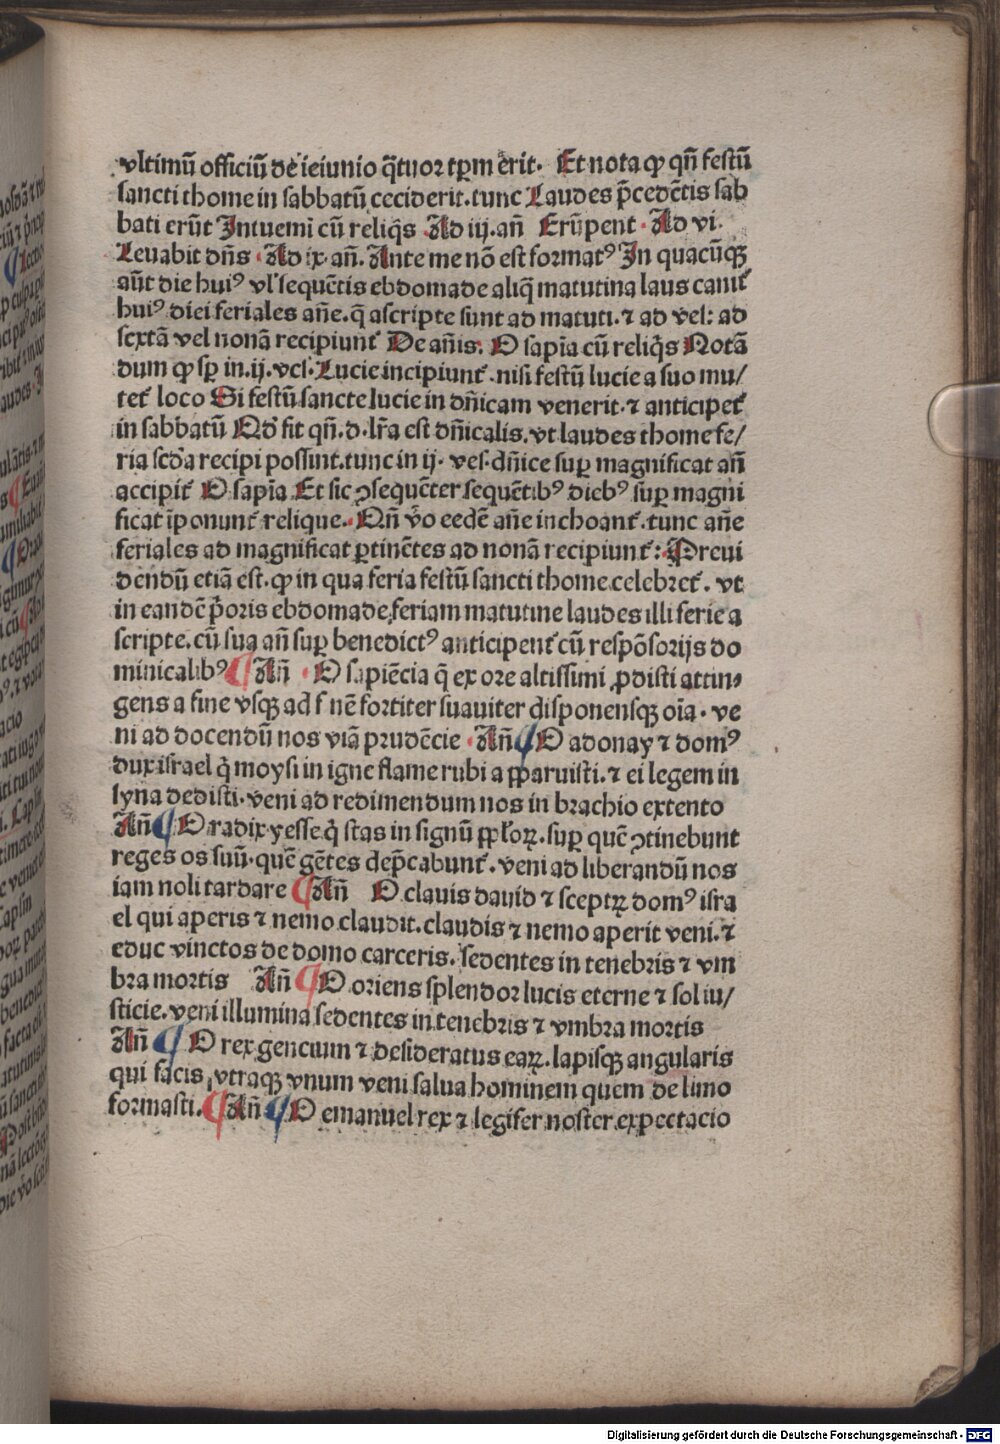 vltimū officiū de ieiunio q̄tuor tꝑm erit. Et nota ꝙ qn̄ festū
sancti thome in sabbatū ceciderit. tunc Laudes p̄cedētis sab
bati erūt Intuemī cū reliq̄s Ad iij. an̄ Erūpent. Ad vi.
Leuabit dn̄s. Ad ix. an̄. Ante me nō est formatꝰ In quacūqꝫ
aūt die huiꝰ vl' sequētis ebdomade aliq̄ matutina laus canit᷑
huiꝰ diei feriales an̄e. q̄ ascripte sunt ad matuti. ⁊ ad vel: ad
sextā vel nonā recipiunt᷑ De an̄is. O sapīa cū reliq̄s Notā
dum ꝙ sꝑ in. ij. vesꝭ. Lucie incipiunt᷑. nisi festū lucie a suo mu/
tet᷑ loco Si festū sancte lucie in dn̄icam venerit. ⁊ anticipet᷑
in sabbatū Qd̓ fit qn̄. d. lr̄a est dn̄icalis. vt laudes thome fe/
ria scd̓a recipi possint. tunc in ij. ves. dn̄ice suꝑ magnificat an̄
accipit᷑ O sapīa Et sic ꝯsequēter sequētibꝰ diebꝰ suꝑ magni
ficat īponunt᷑ relique. Qn̄ v̓o eedē an̄e inchoant᷑. tunc an̄e
feriales ad magnificat ꝑtinētes ad nonā recipiunt᷑: Preui
dendū etiā est. ꝙ in qua feria festū sancti thome celebret᷑. vt
in eandē p̓oris ebdomade feriam matutine laudes illi ferie a
scripte. cū sua an̄ suꝑ benedictꝰ anticipent᷑ cū respōsorijs do
minicalibꝰ ¶ An̄ O sapiēcia q̄ ex ore altissimi ꝓdisti attin⸗
gens a fine vsqꝫ ad f nē fortiter suauiter disponensqꝫ oīa. ve
ni ad docendū nos viā prudēcie. An̄ ¶ O adonay ⁊ domꝰ
dux israel q̇ moysi in igne flame rubi aꝑparuisti. ⁊ ei legem in
syna dedisti. veni ad redimendum nos in brachio extento
An̄ ¶ O radix yesse q̇ stas in signū ppl̓oꝝ. suꝑ quē ꝯtinebunt
reges os suū. quē gētes dep̄cabunt᷑. veni ad liberandū nos
iam noli tardare ¶ An̄ O clauis dauid ⁊ sceptꝝ domꝰ isra
el qui aperis ⁊ nemo claudit. claudis ⁊ nemo aperit veni. ⁊
educ vinctos de domo carceris. sedentes in tenebris ⁊ vm
bra mortis An̄ ¶ O oriens splendor lucis eterne ⁊ sol iu/
sticie. veni illumina sedentes in tenebris ⁊ vmbra mortis
An̄ ¶ O rex gencium ⁊ desideratus eaꝝ. lapisqꝫ angularis
qui facis vtraqꝫ vnum veni salua hominem quem de limo
formasti. ¶ An̄ ¶ O emanuel rex ⁊ legifer noster expectacio
Digitalisierung gefördert durch die Deutsche Forschungsgemeinschaft - DFG